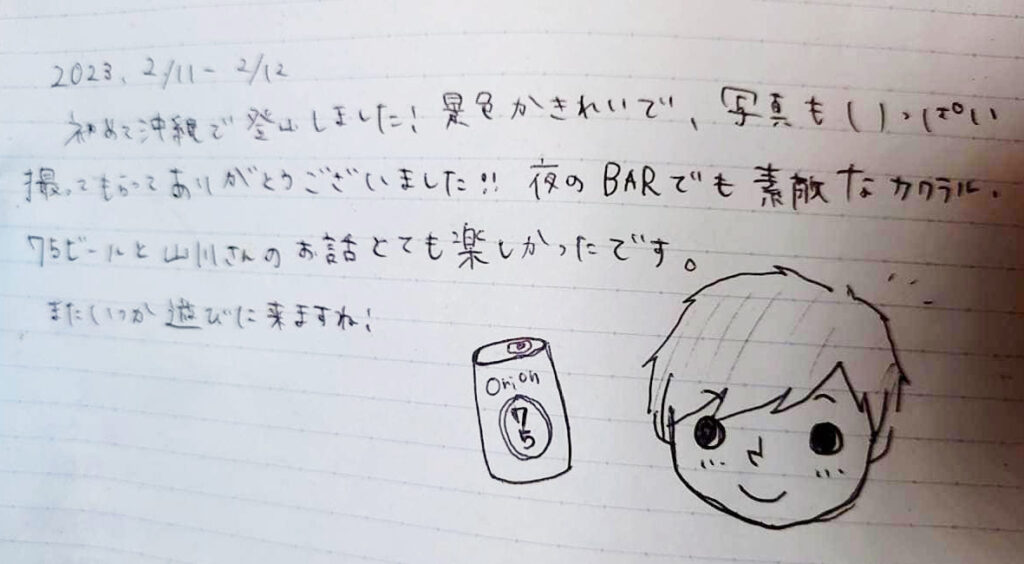 2023. 2/11 - 2/12
初めて沖縄で登山しました! 景色がきれいで、写真もいっぱい
撮ってもらってありがとうございました!! 夜のBARでも素敵なカクテル、
75ビールと山川さんのお話とても楽しかったです。
またいつか遊びに来ますね!
Orion
75